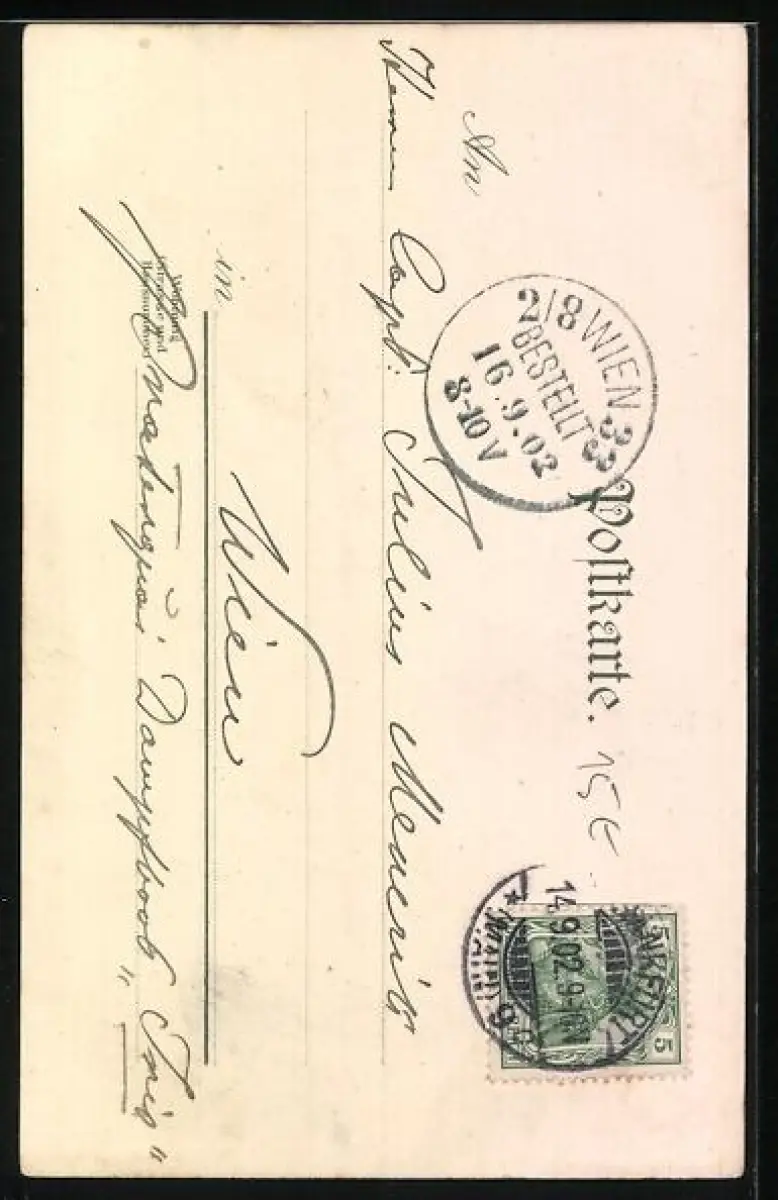 Postkarte.
15 €
5
5
FRANKFURT
(MAIN)
14.9.02.9-10V
* 6
2/8 WIEN 33
BESTELLT
16.9.02
8-10V
An
Herrn Capt: Julius
in Wien
Dampfboot „Iris“